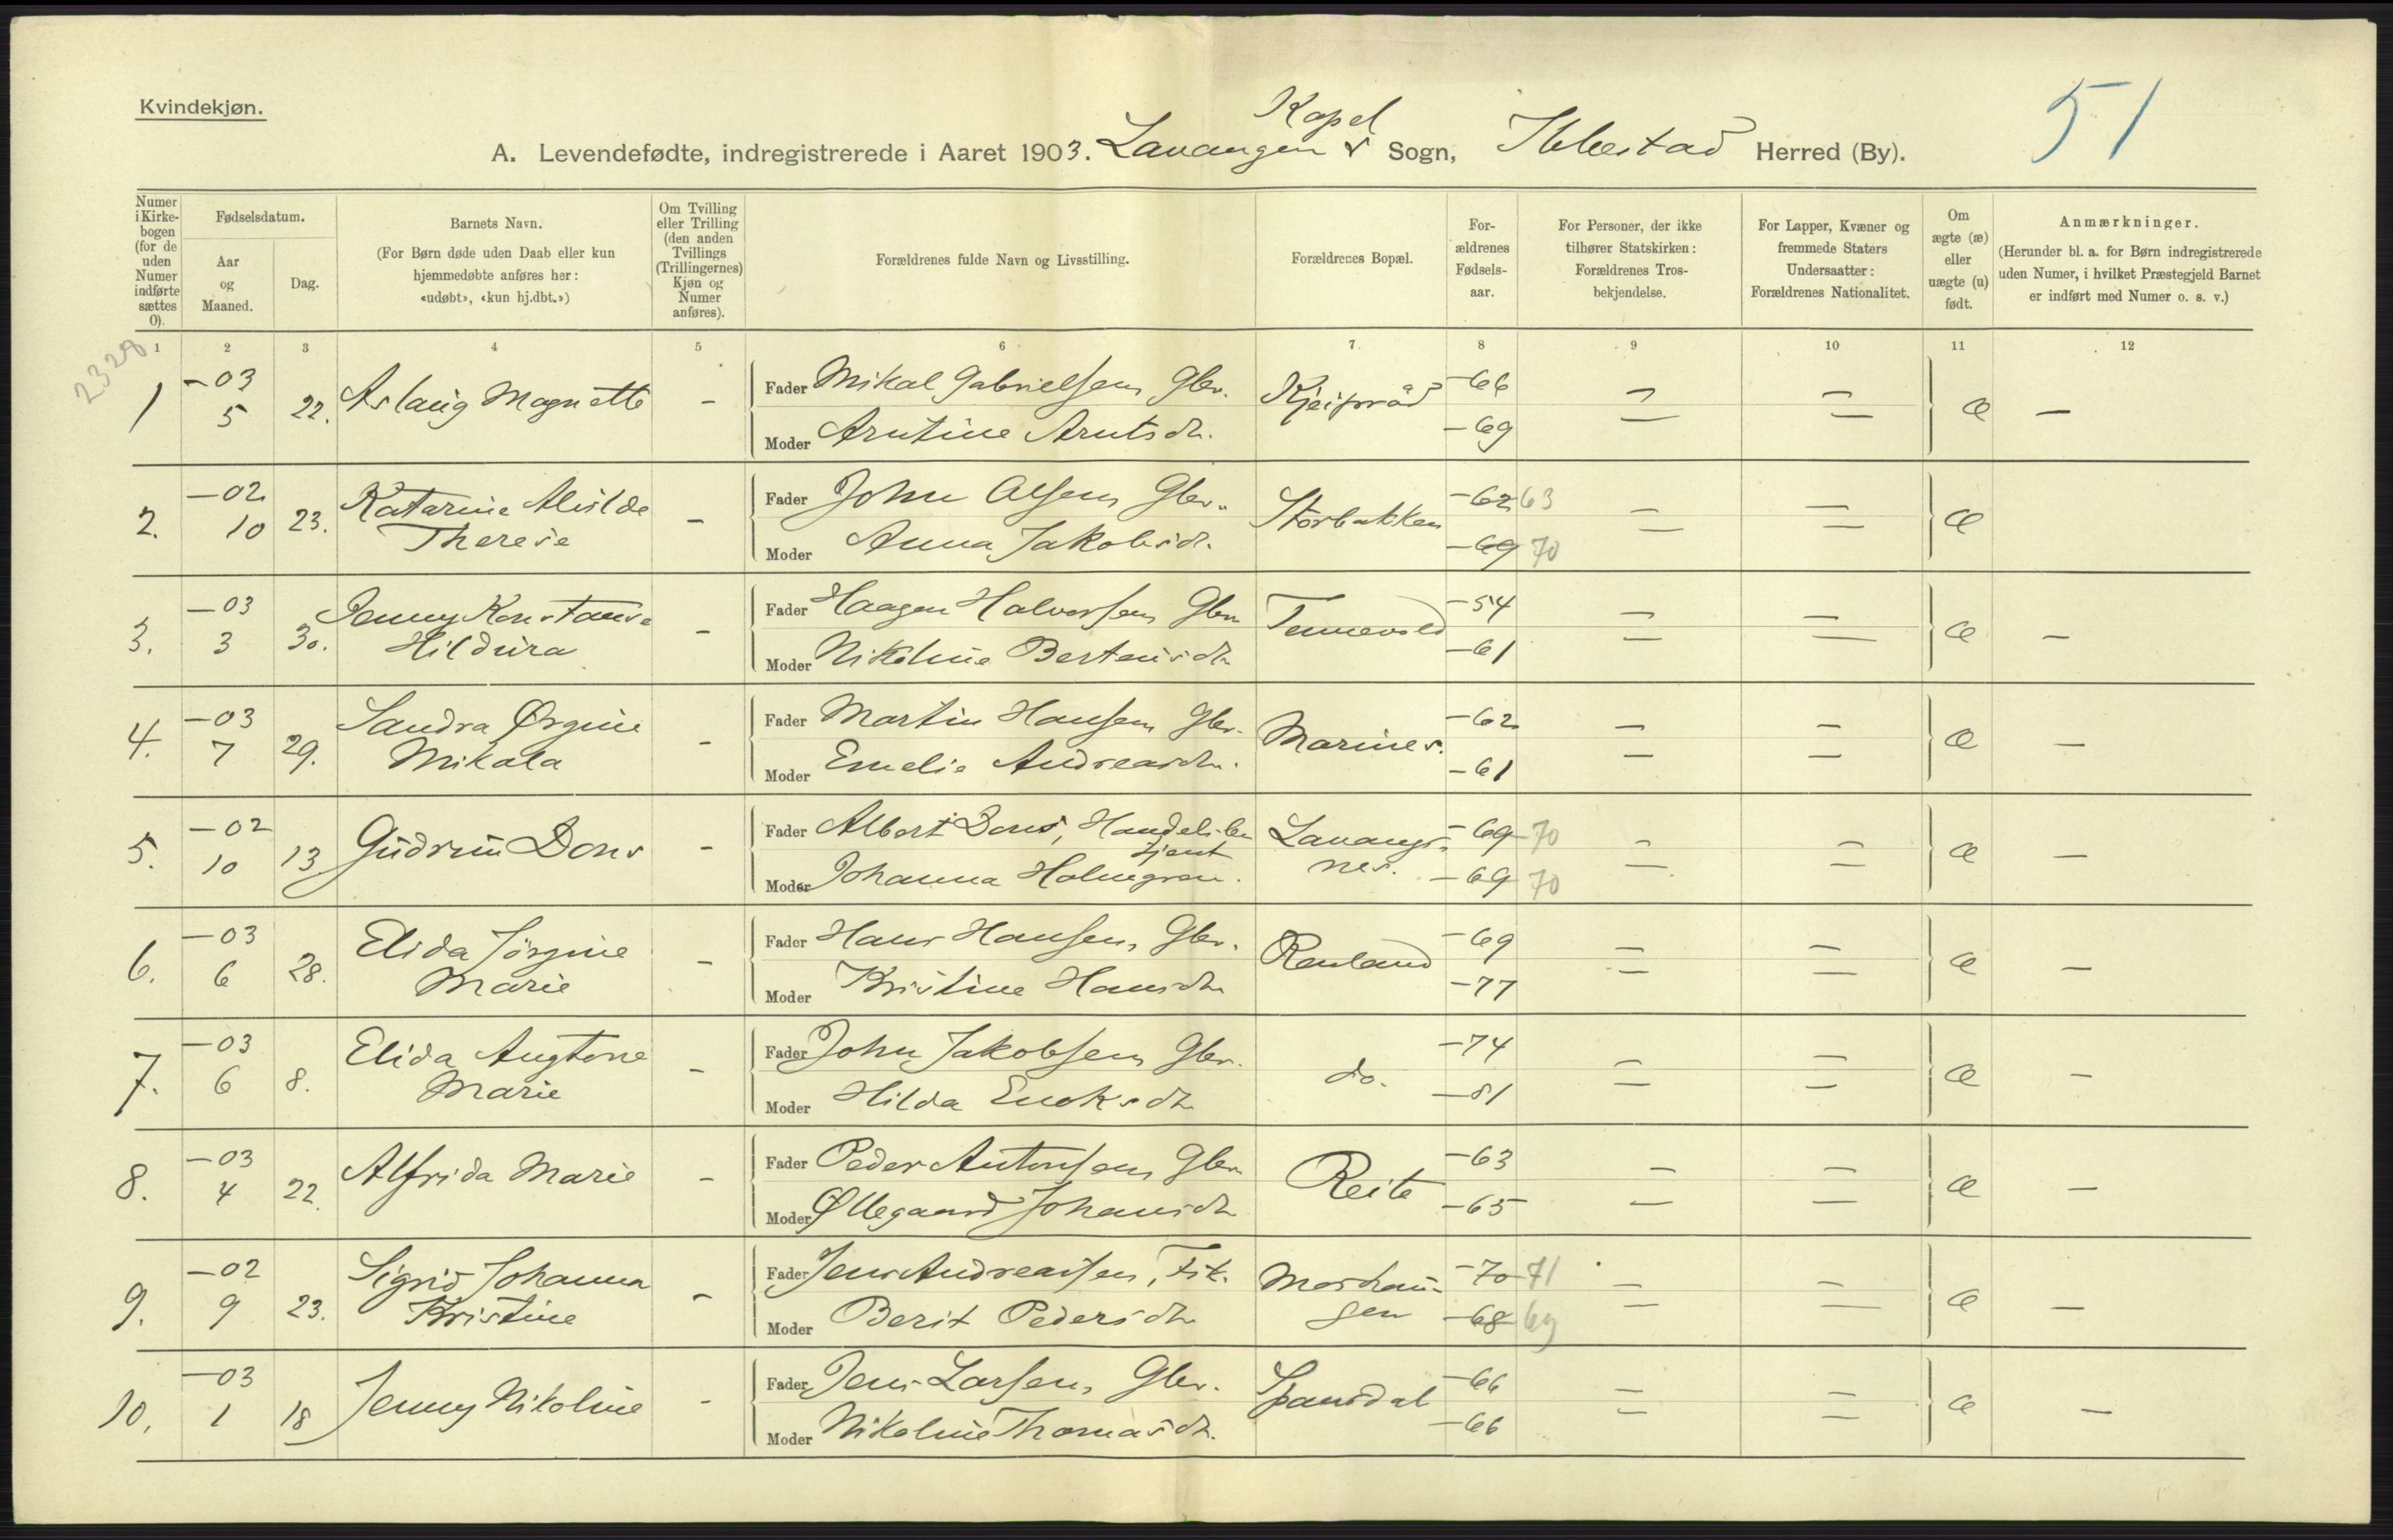 Kvindekjøn.
51
Kapel
A. Levendefødte, indregistrerede i Aaret 1903. Lavangen s Sogn, Ibbestad Herred (By).
Numer i Kirkebogen (for de uden Numer indførte sættes 0).
Fødselsdatum.
Aar og Maaned.
Dag.
Barnets Navn.
(For Børn døde uden Daab eller kun hjemmedøbte anføres her: «udøbt», «kun hj.dbt.»)
Om Tvilling eller Trilling (den anden Tvillings (Trillingernes) Kjøn og Numer anføres).
Forældrenes fulde Navn og Livsstilling.
Forældrenes Bopæl.
Forældrenes Fødselsaar.
For Personer, der ikke tilhører Statskirken: Forældrenes Trosbekjendelse.
For Lapper, Kvæner og fremmede Staters Undersaatter: Forældrenes Nationalitet.
Om ægte (æ) eller uægte (u) født.
Anmærkninger.
(Herunder bl. a. for Børn indregistrerede uden Numer, i hvilket Præstegjeld Barnet er indført med Numer o. s. v.)
1 2 3 4 5 6 7 8 9 10 11 12
2328
1 -03 5 22. Aslaug Magnette - Fader Mikal Gabrielsen Gbr. Kjeipraad -66 — — æ —
Moder Arntine Arntsdr. -69 — —
2. -02 10 23. Katarine Alvilde Therese - Fader John Olsen Gbr. Storbakken -62 63 — — æ
Moder Anna Jakobsdr. -69 70 — —
3. -03 3 30. Jenny Konstanse Hildura - Fader Haagen Halvorsen Gbr. Tennevold -54 — — æ —
Moder Nikoline Berteusdr. -61 — —
4. -03 7 29. Sandra Ørgine Mikala - Fader Martin Hansen Gbr. Marines. -62 — — æ —
Moder Emelie Andreasdr. -61 — —
5. -02 10 13 Gudrun Dons - Fader Albert Dons, Handelsbetjent Lavangsnes. -69 70 — — æ —
Moder Johanna Holmgren. -69 70 — —
6. -03 6 28. Elida Jörgine Marie - Fader Hans Hansen, Gbr. Rauland -69 — — æ —
Moder Kristine Hansdr -77 — —
7. -03 6 8. Elida Augtone Marie - Fader John Jakobsen Gbr. do. -74 — — æ —
Moder Hilda Enoksdr -81 — —
8. -03 4 22. Alfrida Marie - Fader Peder Antonsen Gbr Reite -63 — — æ —
Moder Øllegaard Johansdr -65 — —
9. -02 9 23. Sigrid Johanna Kristine - Fader Jens Andreassen, Fisk. -70 71 — — æ —
Moder Berit Pedersdr -68 69 — —
10. -03 1 18 Jenny Nikoline - Fader Jens Larsen, Gbr. Spansdal -66 — — æ —
Moder Nikoline Thomasdr. -66 — —